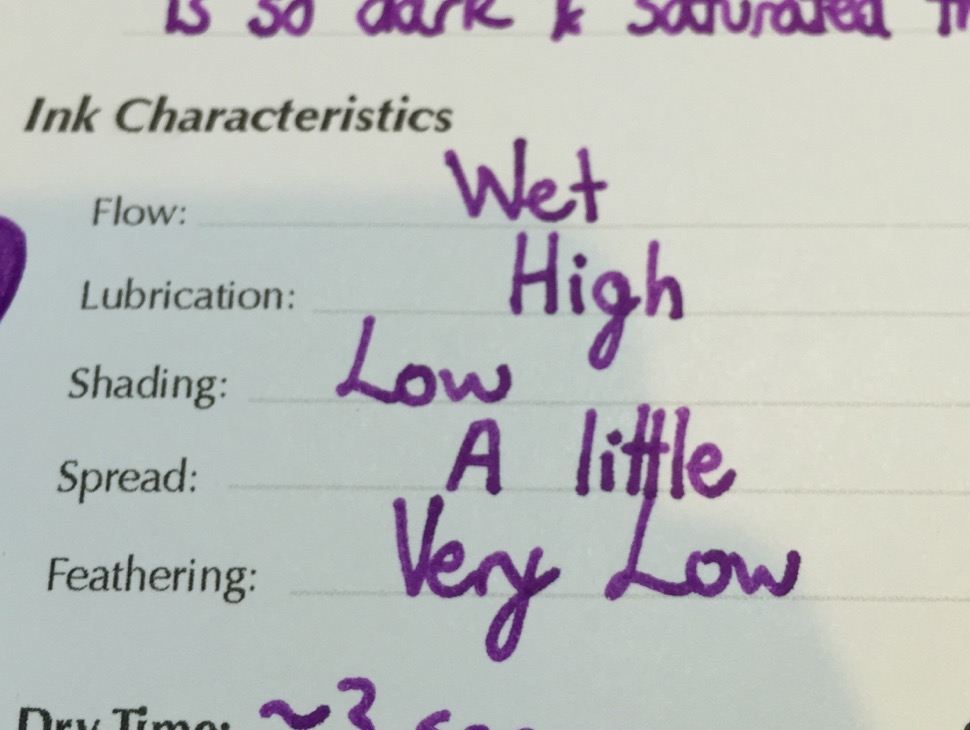 is so dark & saturated
Ink Characteristics
Flow: Wet
Lubrication: High
Shading: Low
Spread: A little
Feathering: Very Low
Dry Time: ~3